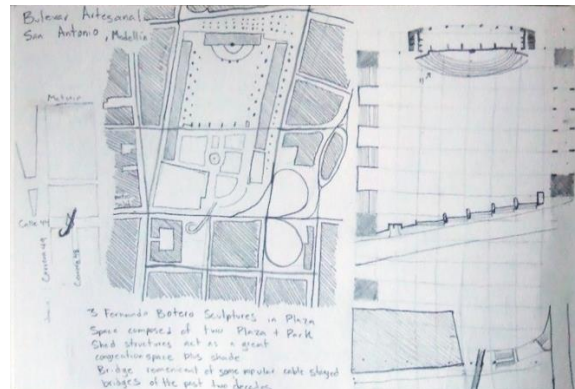 Bulevar Artesanal
San Antonio, Medellín
Calle 44
Carrera 49
3 Fernando Botero Sculptures in Plaza
Space composed of two Plaza + Park
Shed structures act as a great
congregation space plus shade
Bridge remenicent of some popular cable stayed
bridges of the past two decades